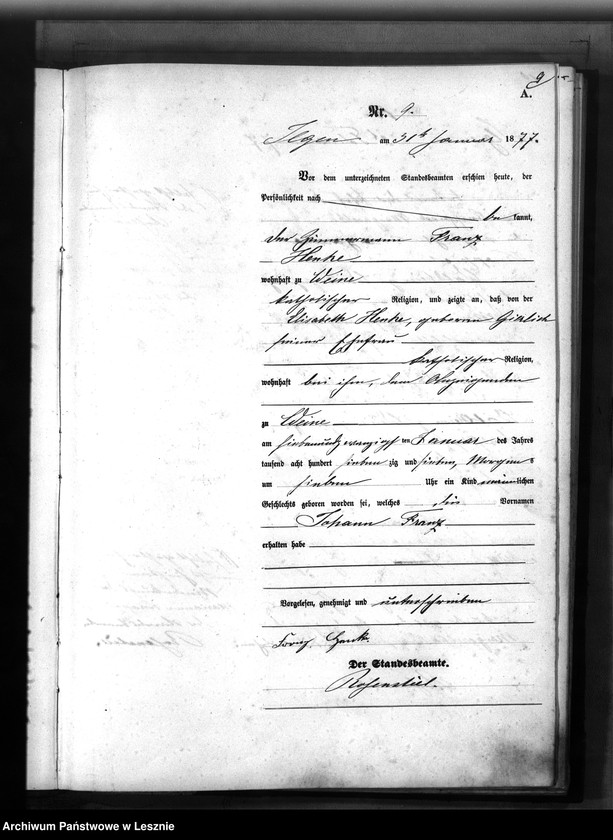 9
A.
Nr. 9.
Ilgen am 31ten Januar 1877.
Vor dem unterzeichneten Standesbeamten erschien heute, der
Persönlichkeit nach
be kannt,
der Zimmermann Franz
Henke
wohnhaft zu Weine
katholischer Religion, und zeigte an, daß von der
Elisabeth Henke, geborenen
seiner Ehefrau
katholischer Religion,
wohnhaft bei ihm, dem Anzeigenden
zu Weine
am siebenundzwanzigsten Januar des Jahres
tausend acht hundert sieben zig und sieben, Morgens
um sieben Uhr ein Kind männlichen
Geschlechts geboren worden sei, welches die Vornamen
Johann Franz
erhalten habe
Vorgelesen, genehmigt und unterschrieben
Franz Henk.
Der Standesbeamte.
Rosenstiel.
Archiwum Państwowe w Lesznie